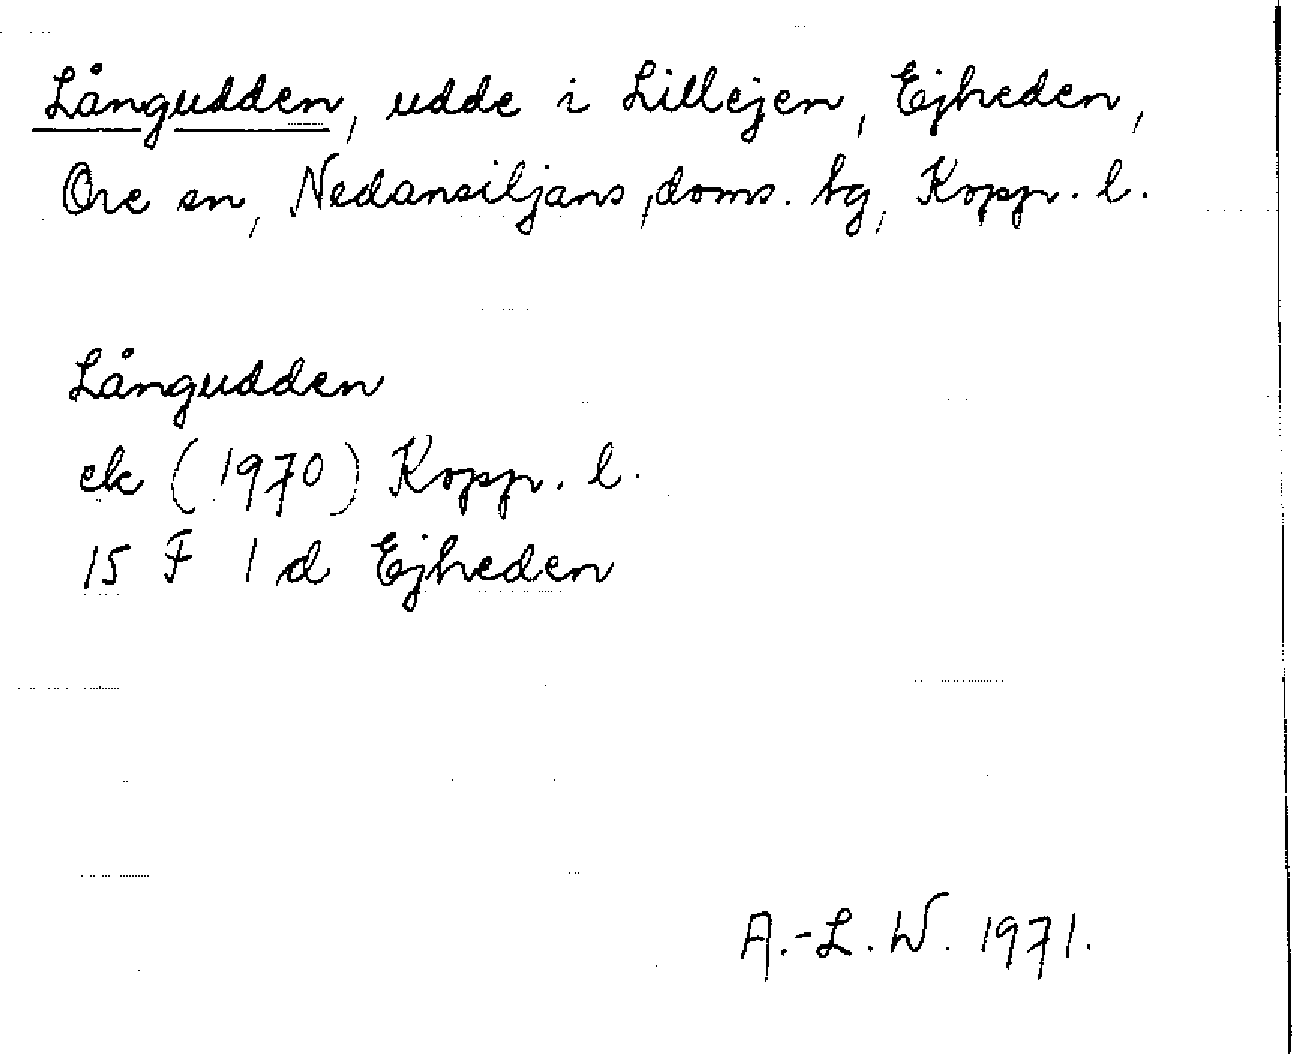 Långudden, udde i Lillejen, Ejheden,
Ore sn, Nedansiljans, doms. tg, Kopp. l.
Långudden
ek (1970) Kopp. l.
15 F 1 d Ejheden
A.-L. W. 1971.